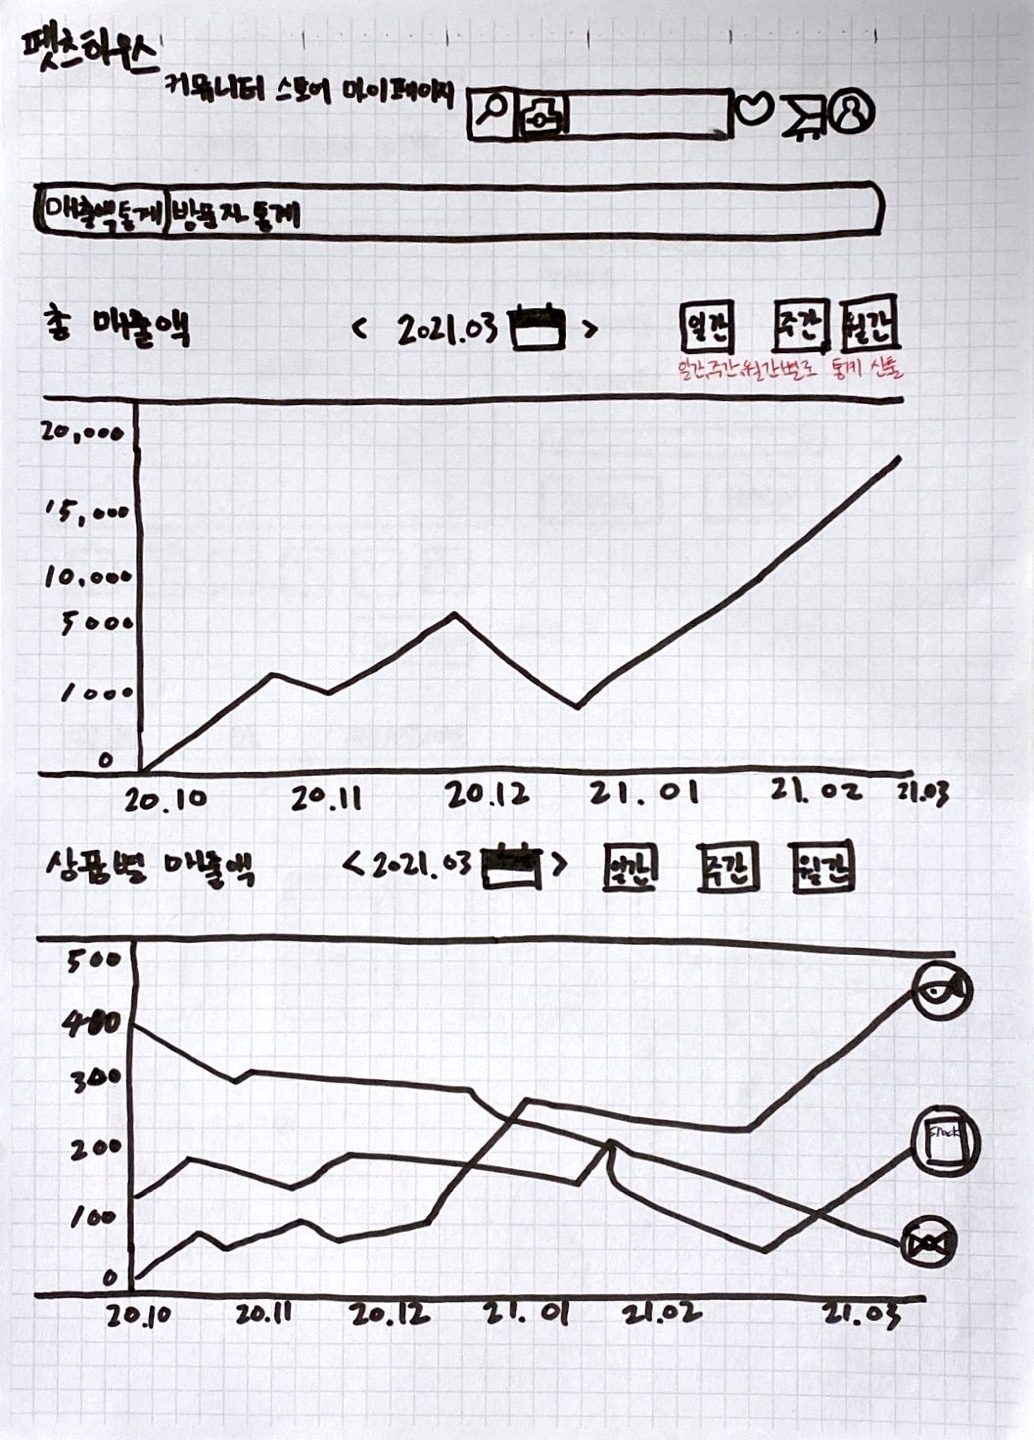 펫츠하우스
커뮤니티 스토어 마이페이지
매출액통계 방문자 통계
총 매출액 < 2021.03 > 일간 주간 월간
일간,주간,월간별로 통계 산출
20,000
15,000
10,000
5000
1000
0
20.10 20.11 20.12 21.01 21.02 21.03
상품별 매출액 < 2021.03 > 일간 주간 월간
500
400
300
200
100
0
snack
20.10 20.11 20.12 21.01 21.02 21.03